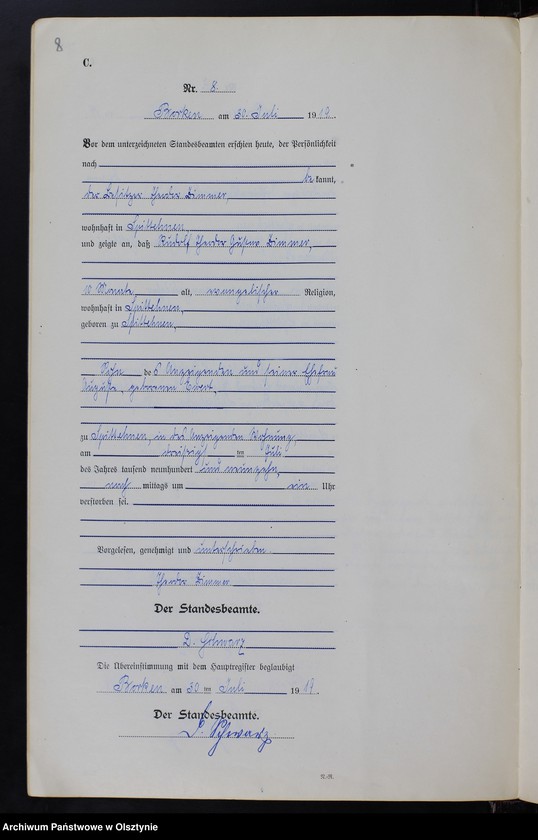 8
C.
Nr. 8
Borken am 30. Juli 1919.
Vor dem unterzeichneten Standesbeamten erschien heute, der Persönlichkeit
nach
be kannt,
der Besitzer Theodor Zimmer,
wohnhaft in Spittehnen,
und zeigte an, daß Rudolf Theodor Gustav Zimmer,
10 Monate alt, evangelischer Religion,
wohnhaft in Spittehnen,
geboren zu Spittehnen,
Sohn des Anzeigenden und seiner Ehefrau
Auguste, geborenen Ewert,
zu Spittehnen, in des Anzeigenden Wohnung,
am dreißigsten Juli
des Jahres tausend neunhundert und neunzehn,
nach mittags um ein Uhr
verstorben sei.
Vorgelesen, genehmigt und unterschrieben
Theodor Zimmer
Der Standesbeamte.
Schwarz
Die Übereinstimmung mit dem Hauptregister beglaubigt
Borken am 30 ten Juli 1919.
Der Standesbeamte.
Schwarz
Archiwum Państwowe w Olsztynie